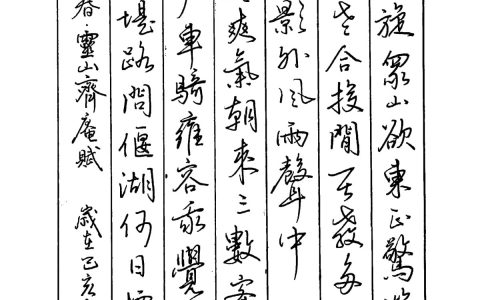 旋眾山欲東正驚
老合投閒天教多
影外風雨聲中
爽氣朝來三數
車騎雍容我覺
堤路問偃湖何日
春·靈山齊庵賦 歲在己亥